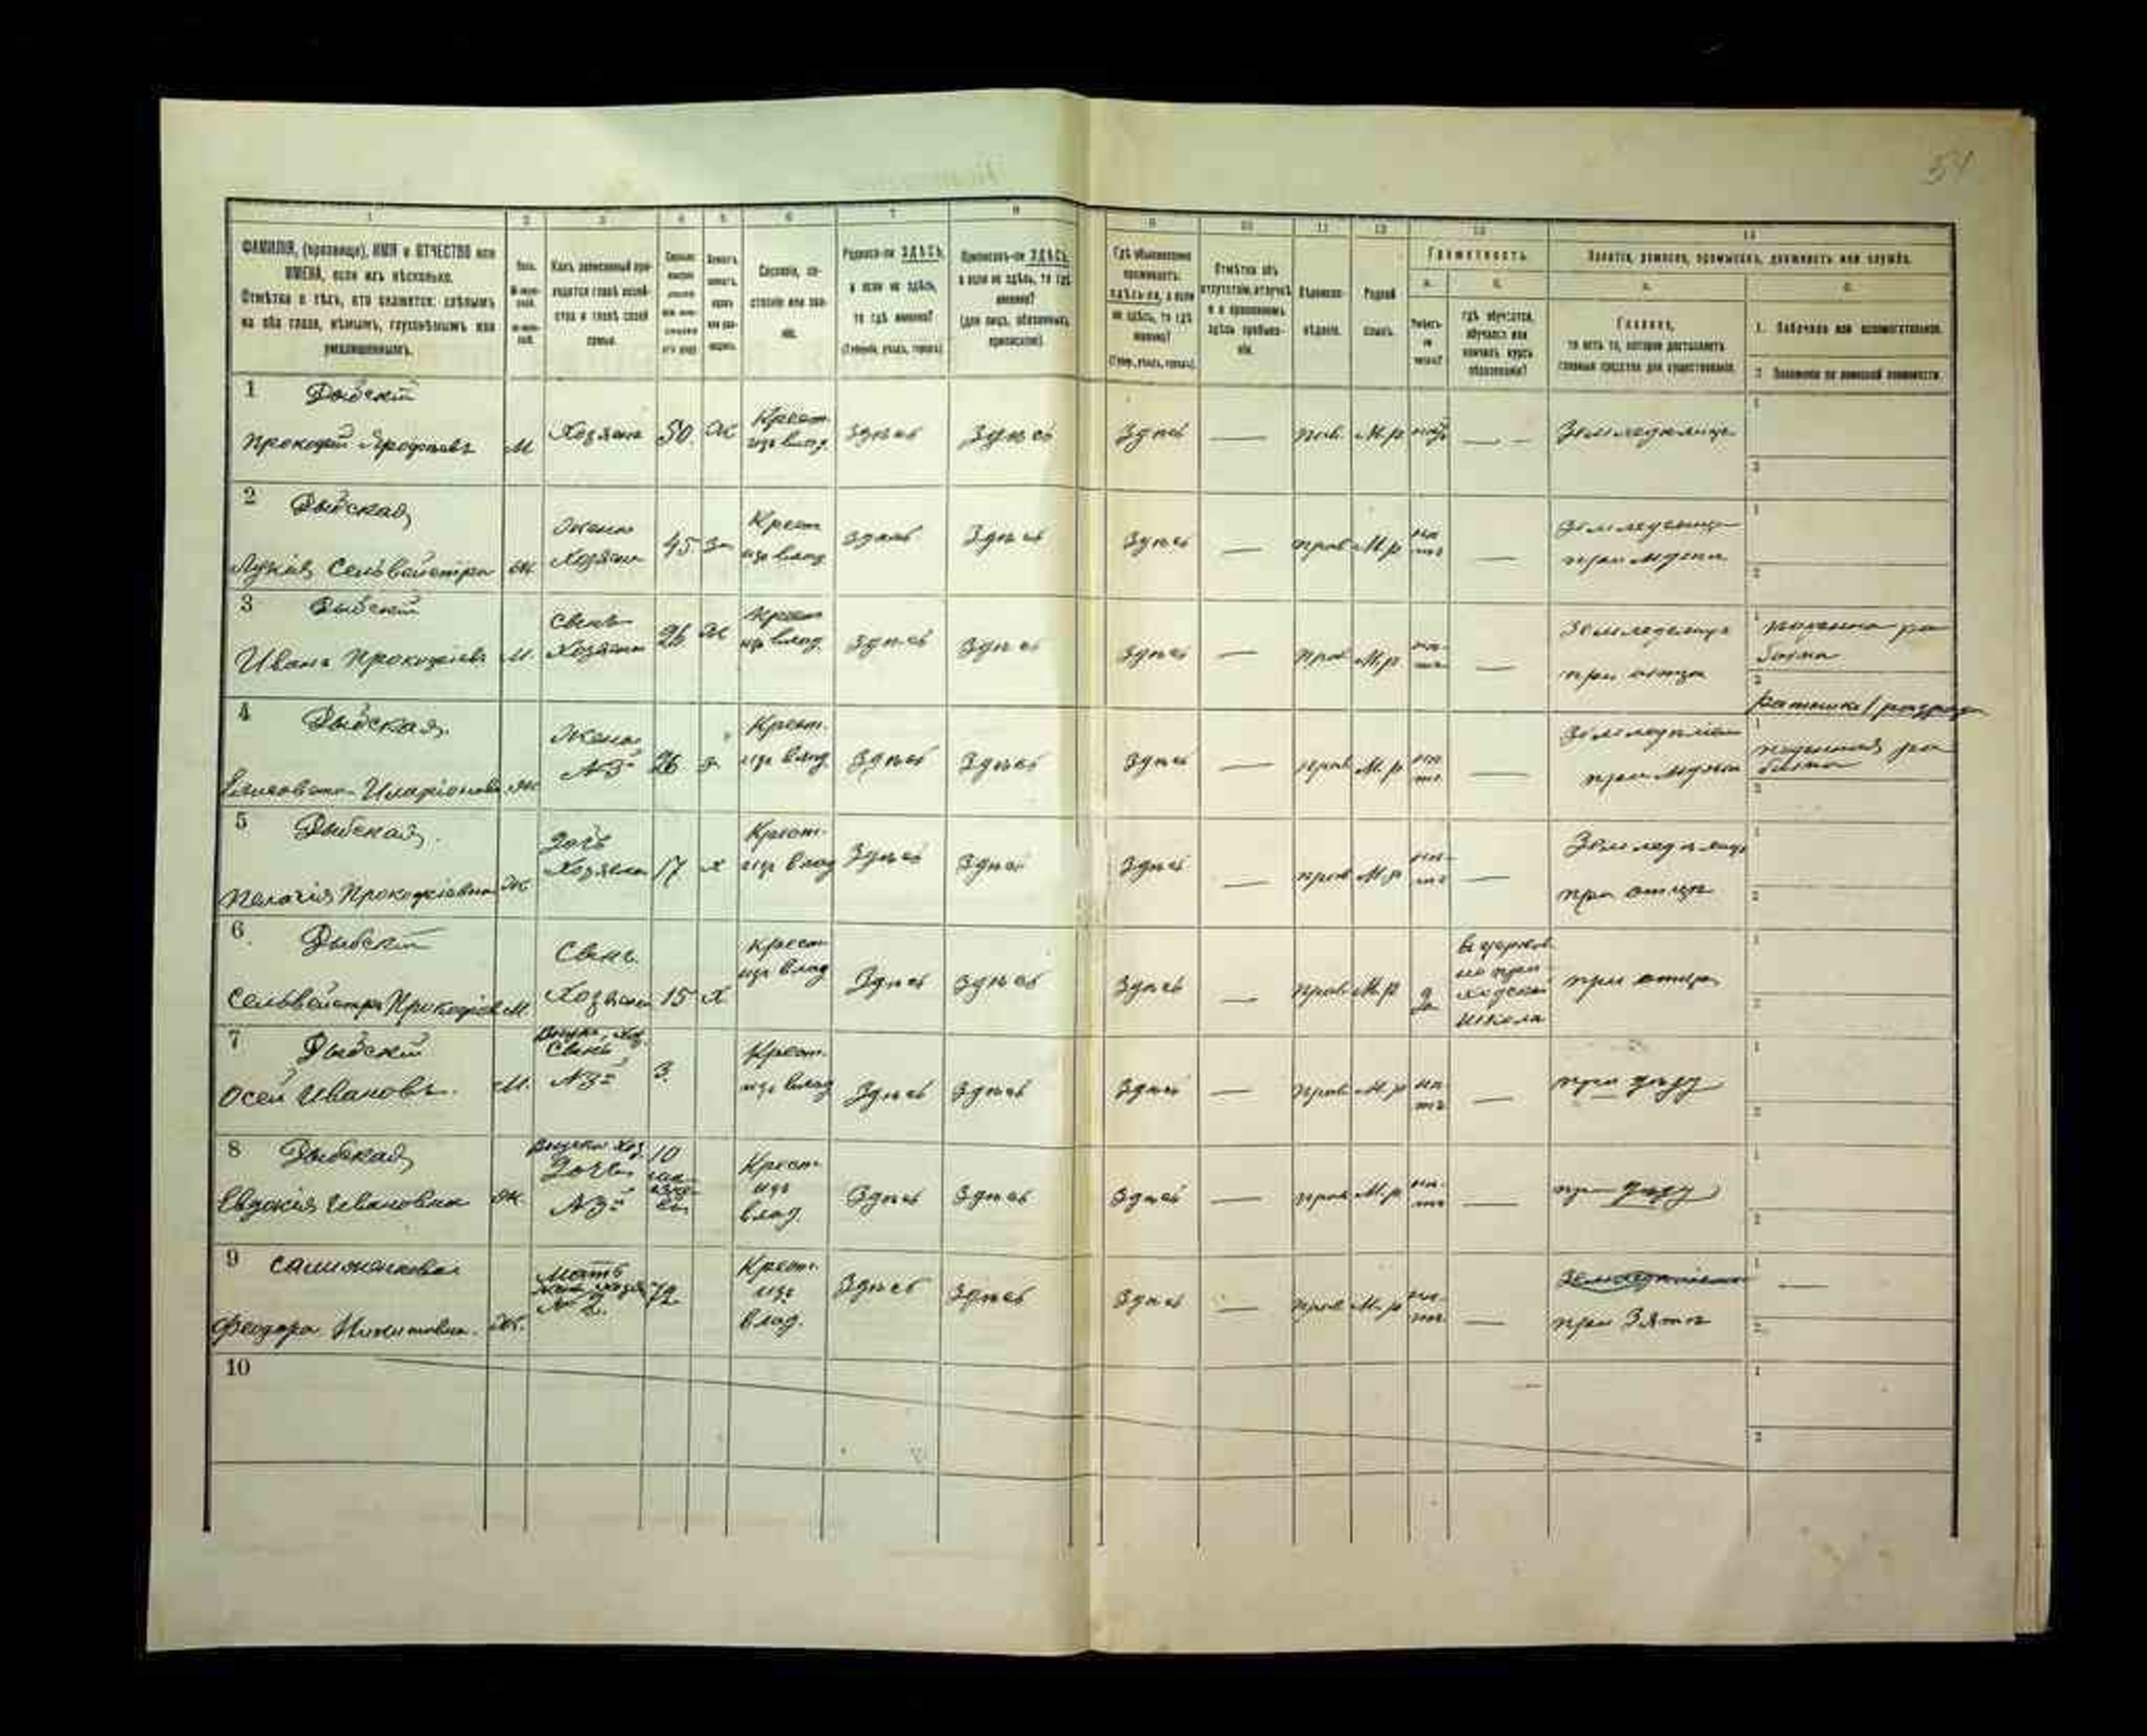 54
1 2 3 4 5 6 7 8 9 10 11 12 13 14
ФАМИЛІЯ, (прозвище), ИМЯ и ОТЧЕСТВО или
ИМЕНА, если ихъ нѣсколько.
Отмѣтка о тѣхъ, кто окажется: слѣпымъ
на оба глаза, нѣмымъ, глухонѣмымъ или
умалишеннымъ.
Полъ.
Какъ записанный при-
ходится главѣ хозяй-
ства и главѣ своей
семьи.
Сословіе, со-
стояніе или зва-
ніе.
Родился-ли ЗДѢСЬ,
а если не здѣсь,
то гдѣ именно?
(Губернія, уѣздъ, городъ).
Приписанъ-ли ЗДѢСЬ,
а если не здѣсь, то гдѣ
именно?
(для лицъ, обязанныхъ
припиской).
Гдѣ обыкновенно
проживаетъ:
здѣсь-ли, а если
не здѣсь, то гдѣ
именно?
(Губер., уѣздъ, городъ).
Отмѣтка объ
отсутствіи, отлучкѣ
и о временномъ
здѣсь пребыва-
ніи.
Вѣроиспо-
вѣданіе.
Родной
языкъ.
Грамотность.
а.
Умѣетъ-
ли
читать?
б.
гдѣ обучается,
обучался или
кончилъ курсъ
образованія?
Занятіе, ремесло, промыселъ, должность или служба.
а.
Главное,
то есть то, которое доставляетъ
главныя средства для существованія.
б.
1. Побочное или вспомогательное.
2. Положеніе по воинской повинности.
1 Дыбскій
Прокофій М Хозяинъ 50 ж Крест. изъ влад. Здѣсь Здѣсь Здѣсь — М.р — Земледѣлецъ
2 Дыбская
Лукія Сельвейстра ж. Жена Хозяина 45 з Крест изъ влад. Здѣсь Здѣсь Здѣсь — прав М.р нѣтъ — при мужѣ
3 Дыбскій
Иванъ Прокофіевъ М. Сынъ Хозяина 26 ж Крест изъ влад. Здѣсь Здѣсь Здѣсь — прав М.р нѣтъ — Земледѣлецъ при отцѣ
4 Дыбская.
Иларіонова ж Жена №3й 26 з Крест. изъ влад Здѣсь Здѣсь Здѣсь — прав М.р нѣтъ — при мужѣ
5 Дыбская.
Пелагія Прокофіевна ж Дочь Хозяина 17 х Крест. изъ влад Здѣсь Здѣсь Здѣсь — прав М.р нѣтъ — при отцѣ
6 Дыбскій
Сельвейстръ М. Сынъ Хозяина 15 х крест изъ влад Здѣсь Здѣсь Здѣсь — прав М.р да въ церков но при ходской школѣ при отцѣ
7 Дыбскій
Осей Ивановъ. М. Внукъ хоз. Сынъ №3й 3. Крест. изъ влад Здѣсь Здѣсь Здѣсь — прав М.р нѣтъ — при дѣду
8 Дыбская
Евдокія Ивановна ж. Внучка хоз. Дочь №3й 10 Крест. изъ влад. Здѣсь Здѣсь Здѣсь — прав М.р нѣтъ — при дѣду
9
Феодора Никитовна. ж. Мать 72 Крест. изъ влад. Здѣсь Здѣсь Здѣсь — прав М.р нѣтъ — при Зятѣ —
10